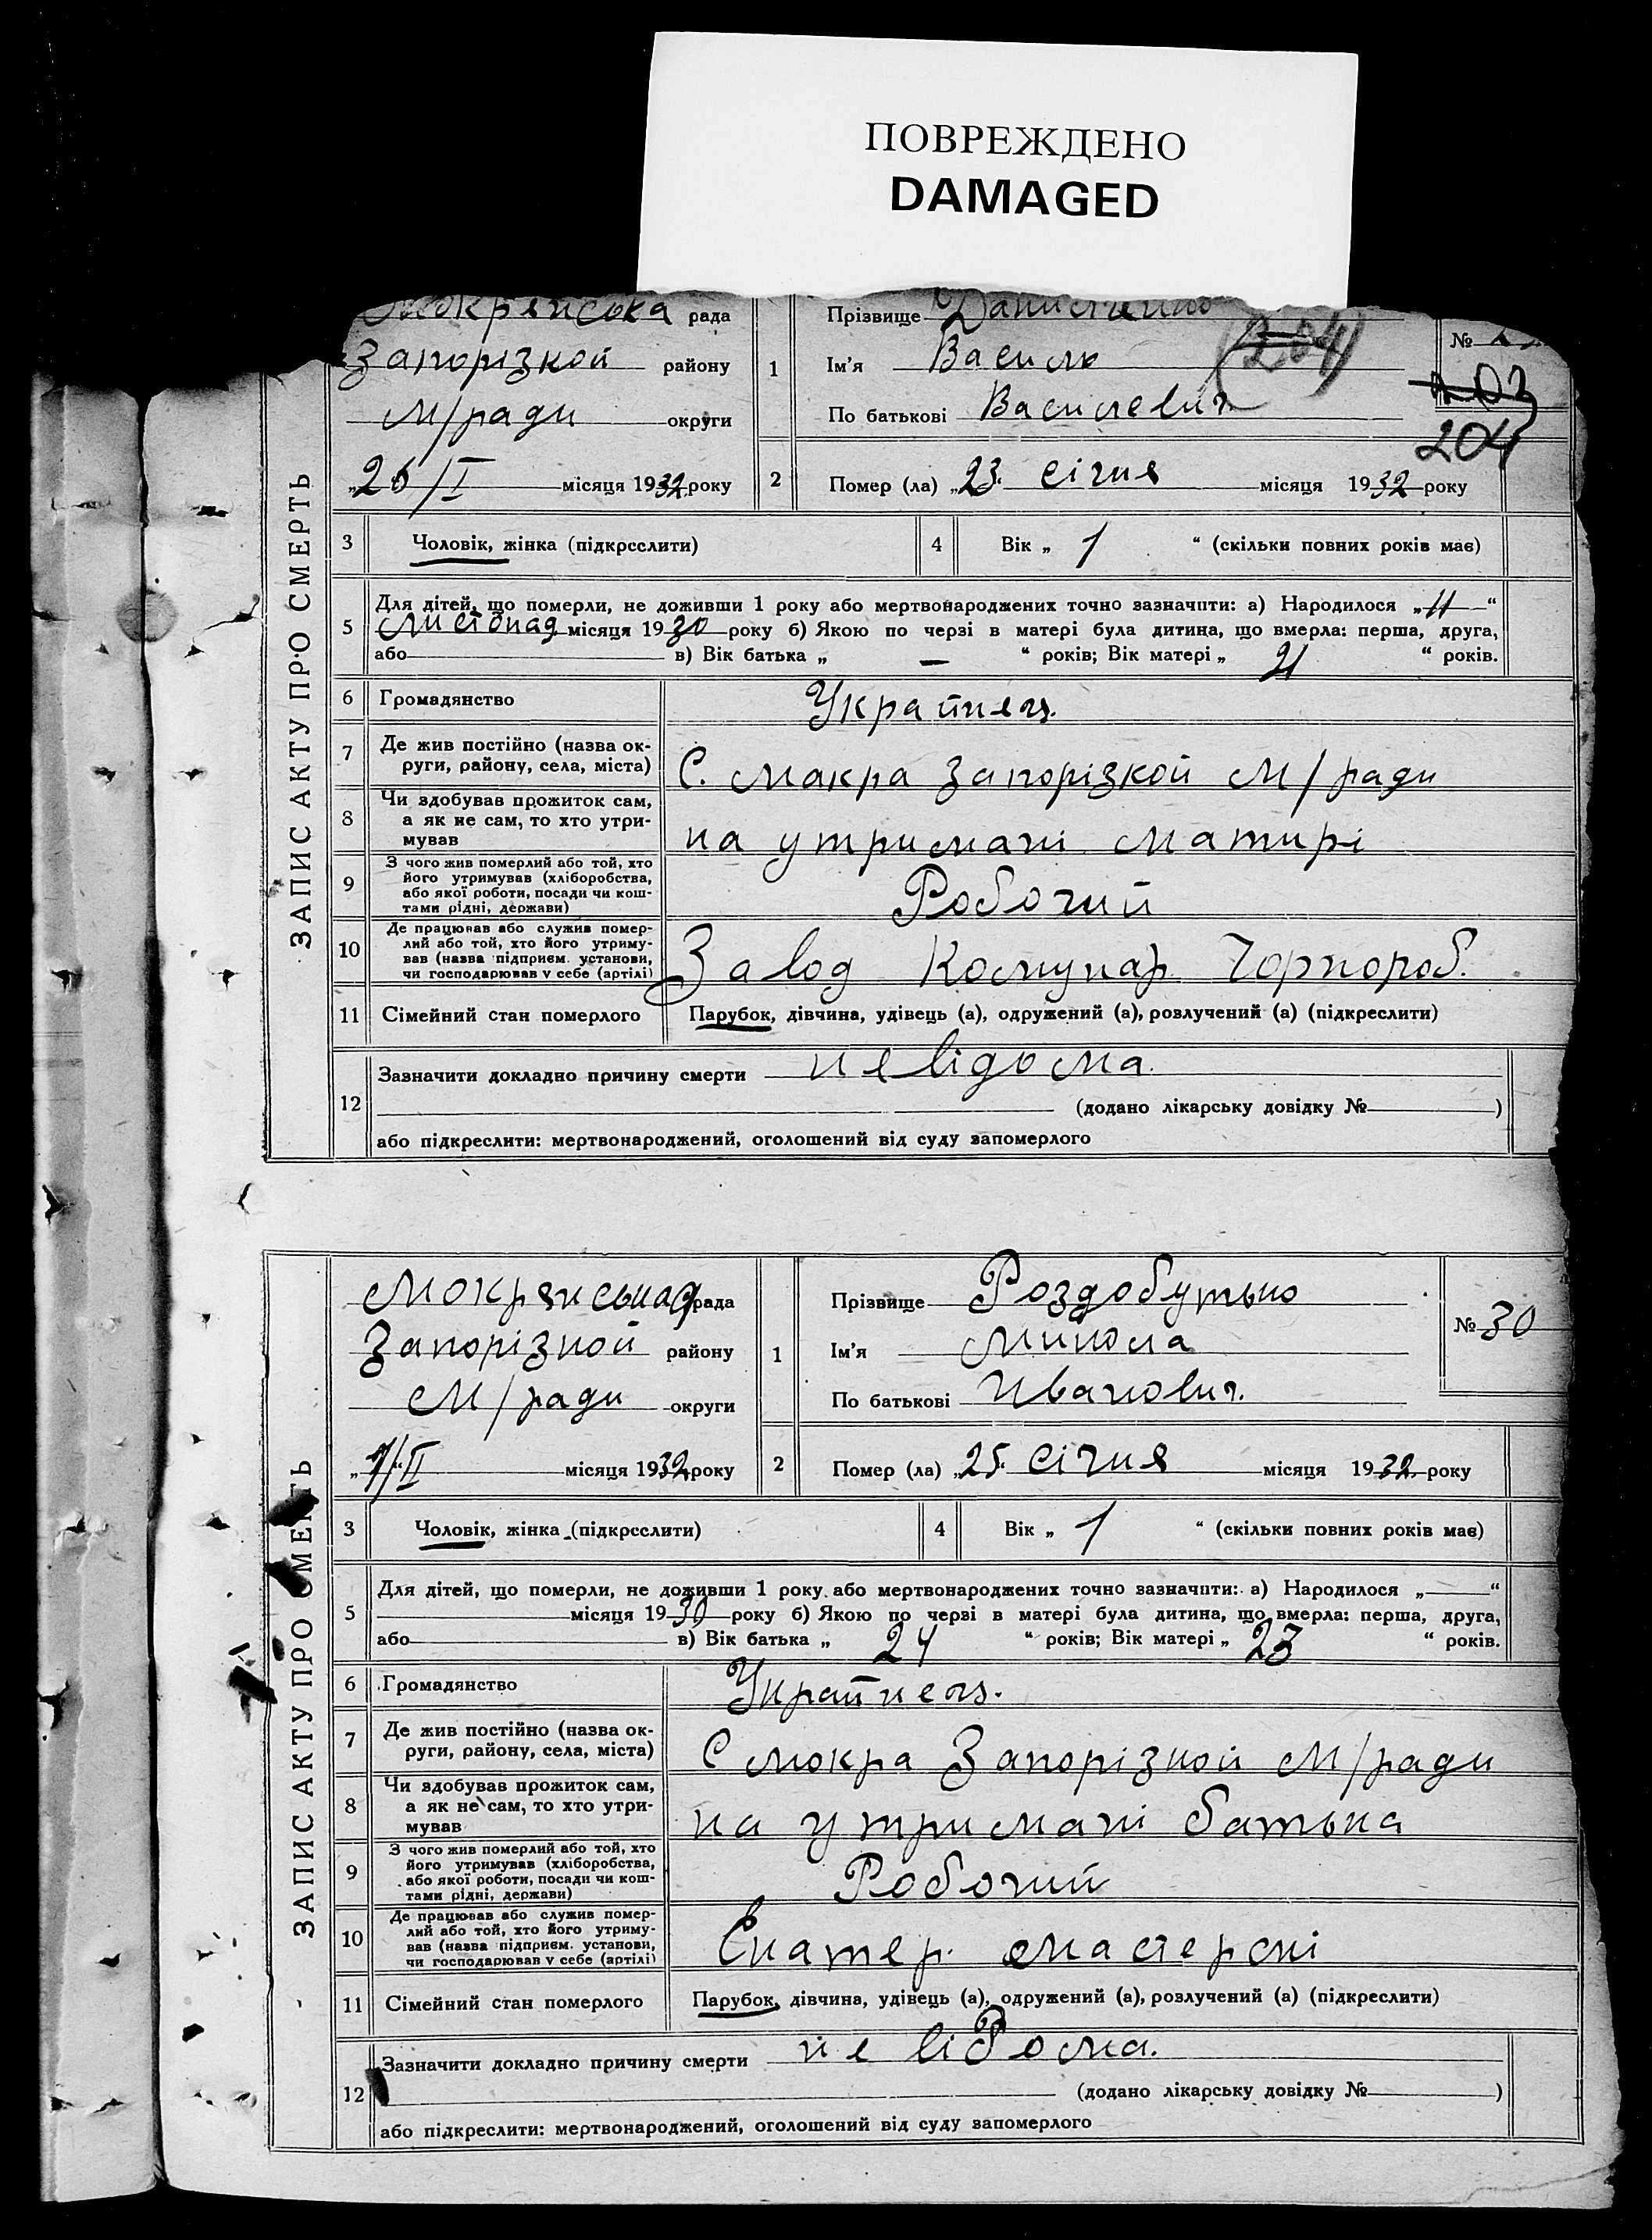 ПОВРЕЖДЕНО
DAMAGED
ЗАПИС АКТУ ПРО СМЕРТЬ
Мокрянська рада
Запорізкой району
М/ради округи
„26/I місяця 1932 року
1
Прізвище
Ім'я Василь
По батькові Василевич
(204)
№
203
204
2
Помер (ла) „23. січня місяця 1932 року
3 Чоловік, жінка (підкреслити)
4 Вік „ 1 “ (скільки повних років має)
5 Для дітей, що померли, не доживши 1 року або мертвонароджених точно зазначити: а) Народилося „11“
Листопад місяця 1930 року б) Якою по черзі в матері була дитина, що вмерла: перша, друга,
або в) Вік батька „ — “ років; Вік матері „ 21 “ років.
6 Громадянство Українець.
7 Де жив постійно (назва ок-
руги, району, села, міста) С. Макра Запорізкой М/ради
8 Чи здобував прожиток сам,
а як не сам, то хто утри-
мував на утримані матирі
9 З чого жив померлий або той, хто
його утримував (хліборобства,
або якої роботи, посади чи кош-
тами рідні, держави) Робочий
10 Де працював або служив помер-
лий або той, хто його утриму-
вав (назва підприєм. установи,
чи господарював у себе (артілі) Завод Комунар Чорнороб.
11 Сімейний стан померлого Парубок, дівчина, удівець (а), одружений (а), розлучений (а) (підкреслити)
12 Зазначити докладно причину смерти невідома.
(додано лікарську довідку № )
або підкреслити: мертвонароджений, оголошений від суду запомерлого
ЗАПИС АКТУ ПРО СМЕРТЬ
Мокрянська рада
Запорізкой району
М/ради округи
„1/II місяця 1932 року
1
Прізвище Роздобутько
Ім'я Микола
По батькові Иванович.
№ 30
2
Помер (ла) „25. січня місяця 1932 року
3 Чоловік, жінка (підкреслити)
4 Вік „ 1 “ (скільки повних років має)
5 Для дітей, що померли, не доживши 1 року або мертвонароджених точно зазначити: а) Народилося „ “
місяця 1930 року б) Якою по черзі в матері була дитина, що вмерла: перша, друга,
або в) Вік батька „ 24 “ років; Вік матері „ 23 “ років.
6 Громадянство Українець.
7 Де жив постійно (назва ок-
руги, району, села, міста) С Мокра Запорізкой М/ради
8 Чи здобував прожиток сам,
а як не сам, то хто утри-
мував на утримані батька
9 З чого жив померлий або той, хто
його утримував (хліборобства,
або якої роботи, посади чи кош-
тами рідні, держави) Робочий
10 Де працював або служив помер-
лий або той, хто його утриму-
вав (назва підприєм. установи,
чи господарював у себе (артілі) Екатер. мастерскі
11 Сімейний стан померлого Парубок, дівчина, удівець (а), одружений (а), розлучений (а) (підкреслити)
12 Зазначити докладно причину смерти не відома.
(додано лікарську довідку № )
або підкреслити: мертвонароджений, оголошений від суду запомерлого